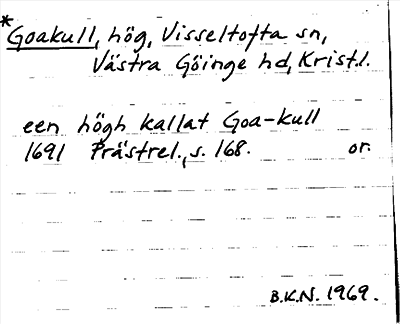 *Goakull, hög, Visseltofta sn,
Västra Göinge hd, Krist.l.
een högh kallat Goa-kull
1691 Prästrel., s. 168. or.
B.K.N. 1969.